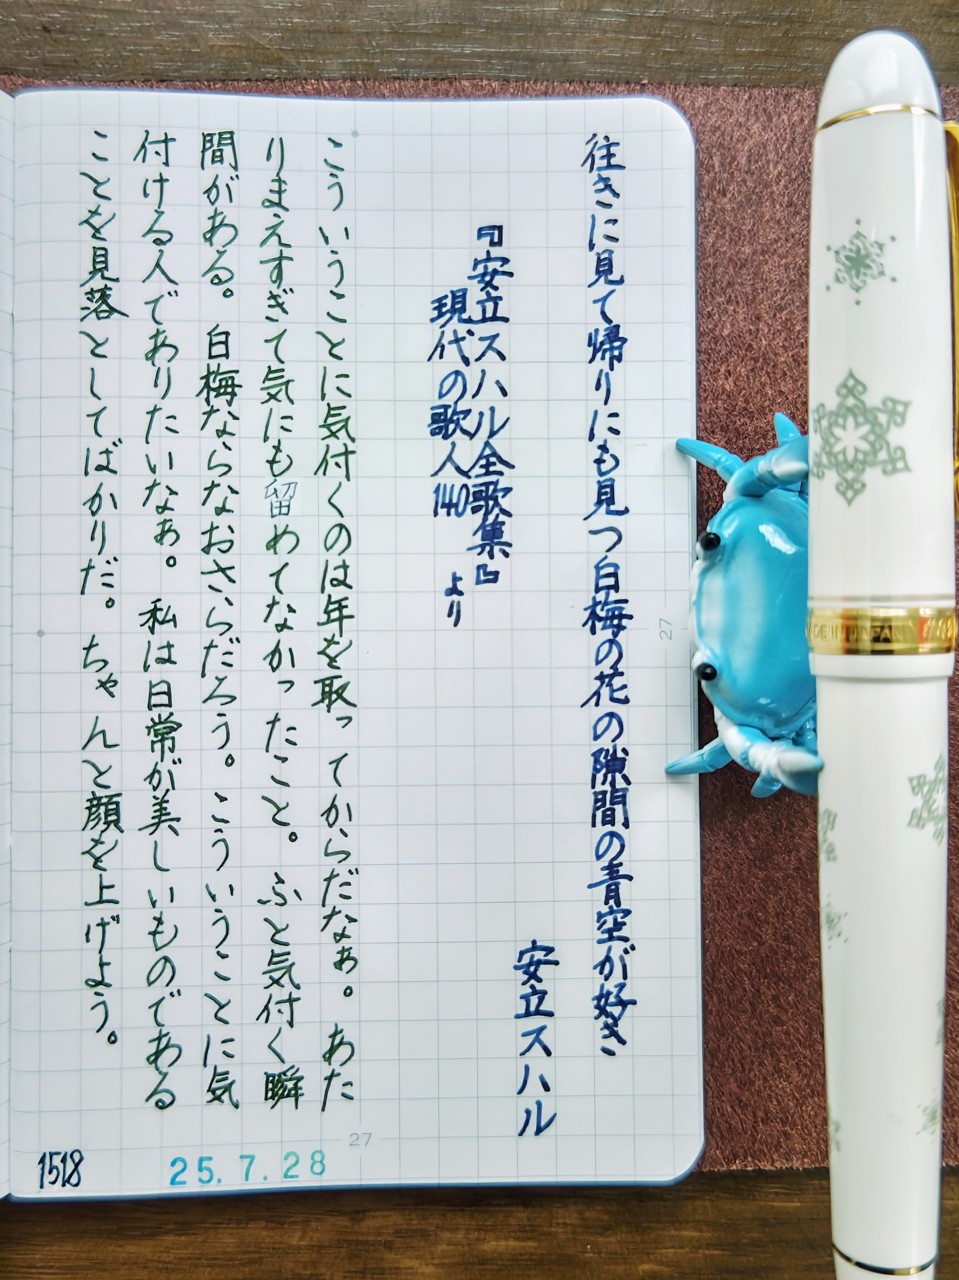 往きに見て帰りにも見つ白梅の花の隙間の青空が好き
安立スハル
『安立スハル全歌集』
現代の歌人140 より
こういうことに気付くのは年を取ってからだなぁ。あた
りまえすぎて気にも留めてなかったこと。ふと気付く瞬
間がある。白梅ならなおさらだろう。こういうことに気
付ける人でありたいなぁ。私は日常が美しいものである
ことを見落としてばかりだ。ちゃんと顔を上げよう。
27
27
25.7.28
1518